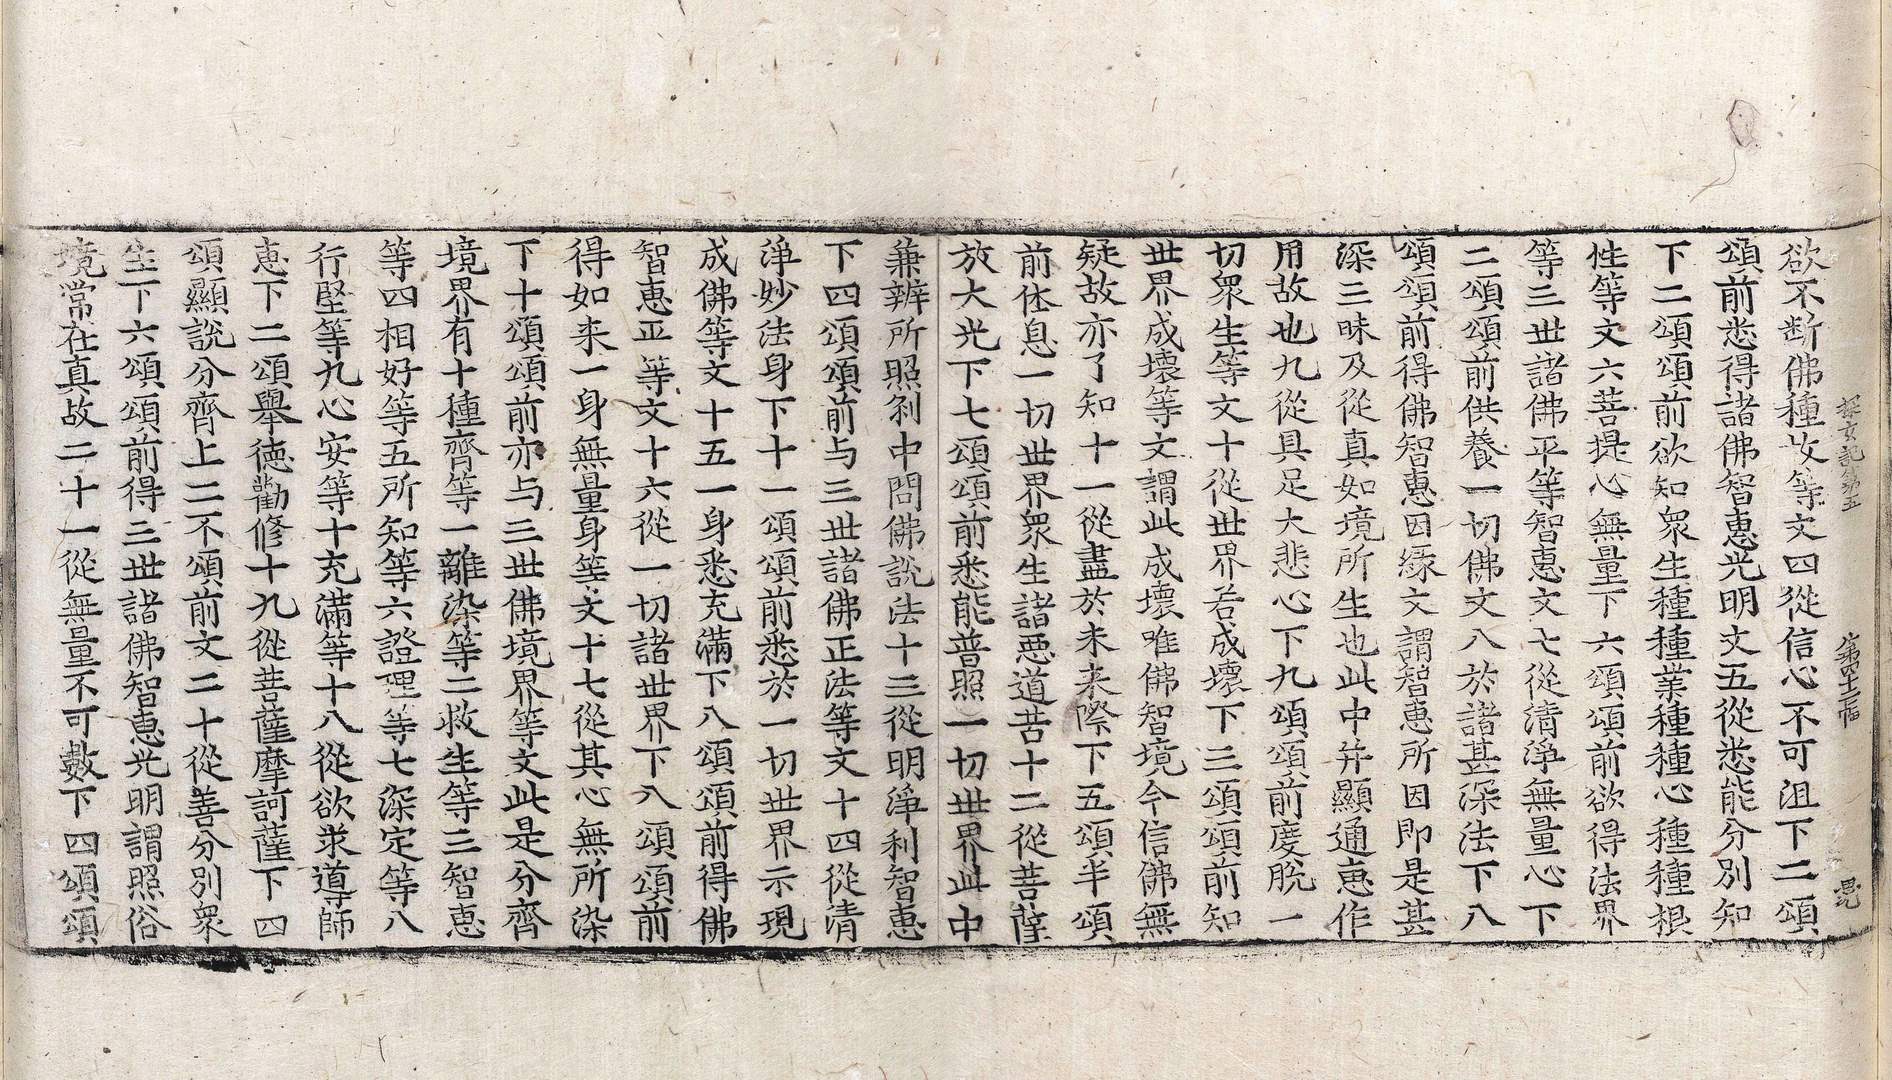 探玄記第五　第四十二幅　毘
欲不断佛種故等文四從信心不可沮下二頌
頌前悉得諸佛智恵光明文五從悉能分別知
下二頌頌前欲知衆生種種業種種心種種根
性等文六菩提心無量下六頌頌前欲得法界
等三世諸佛平等智恵文七從清淨無量心下
二頌頌前供養一切佛文八於諸甚深法下八
頌頌前得佛智恵因縁文謂智恵所因即是甚
深三昧及從真如境所生也此中并顯通恵作
用故也九從具足大悲心下九頌頌前度脱一
切衆生等文十從世界若成壞下三頌頌前知
世界成壞等文謂此成壞唯佛智境今信佛無
疑故亦了知十一從盡於未来際下五頌半頌
前休息一切世界衆生諸悪道苦十二從菩薩
放大光下七頌頌前悉能普照一切世界此中
兼辨所照刹中問佛説法十三從明淨利智恵
下四頌頌前与三世諸佛正法等文十四從清
淨妙法身下十一頌頌前悉於一切世界示現
成佛等文十五一身悉充滿下八頌頌前得佛
智恵正等文十六從一切諸世界下八頌頌前
得如来一身無量身等文十七從其心無所染
下十頌頌前亦与三世佛境界等文此是分齊
境界有十種齊等一離染等二救生等三智恵
等四相好等五所知等六證理等七深定等八
行堅等九心安等十充滿等十八從欲求導師
恵下二頌舉德勸修十九從菩薩摩訶薩下四
頌顯説分齊上二不頌前文二十從善分別衆
生下六頌頌前得三世諸佛智恵光明謂照俗
境常在真故二十一從無量不可數下四頌頌